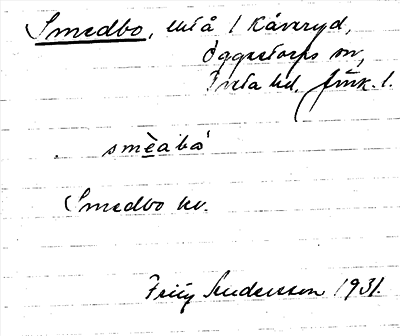 Smedbo, utå / Kåveryd,
Öggestorps sn,
Tveta hd. Jönk. l.
smèabó
Smedbo kv.
Fritz Andersson 1931.